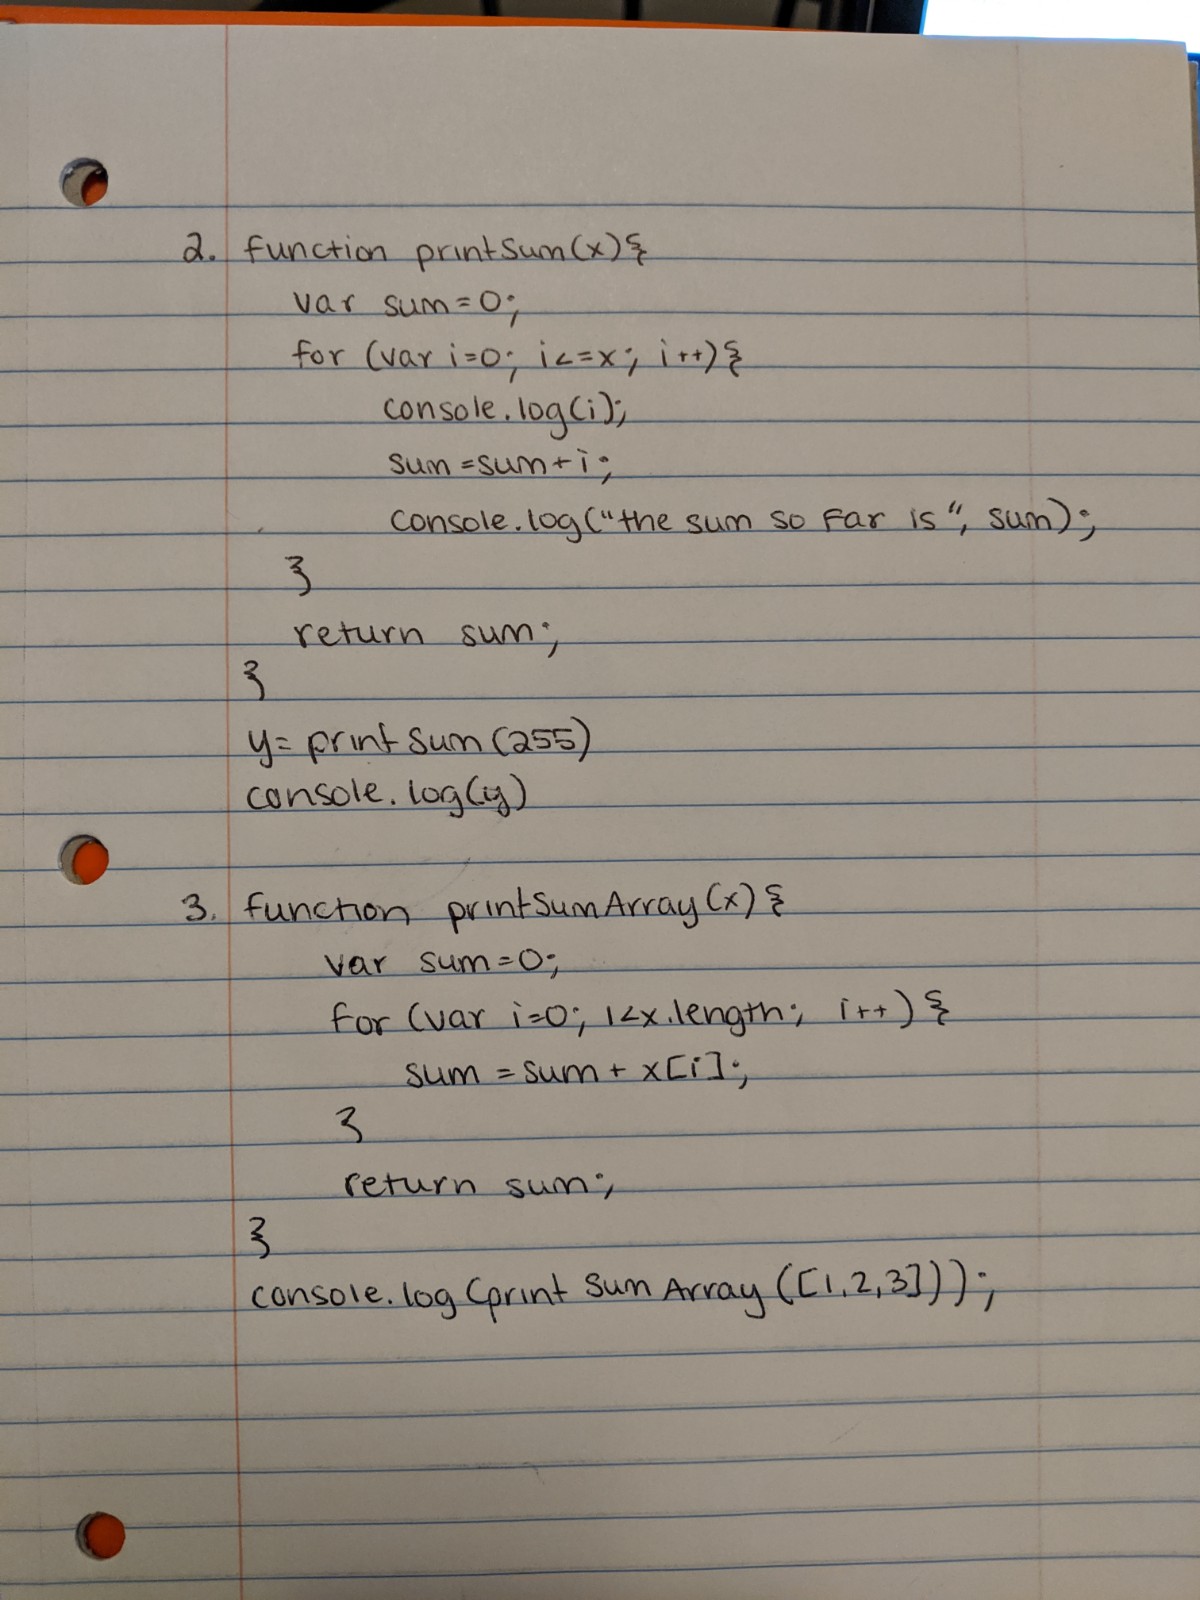 2. function printSum(x){
var sum=0;
for (var i=0; i<=x; i++){
console.log(i);
sum=sum+i;
console.log("the sum so far is", sum);
}
return sum;
}
y=printSum(255)
console.log(y)
3. function printSumArray(x){
var sum=0;
for (var i=0; i<x.length; i++){
sum=sum+x[i];
}
return sum;
}
console.log(printSumArray([1,2,3]));